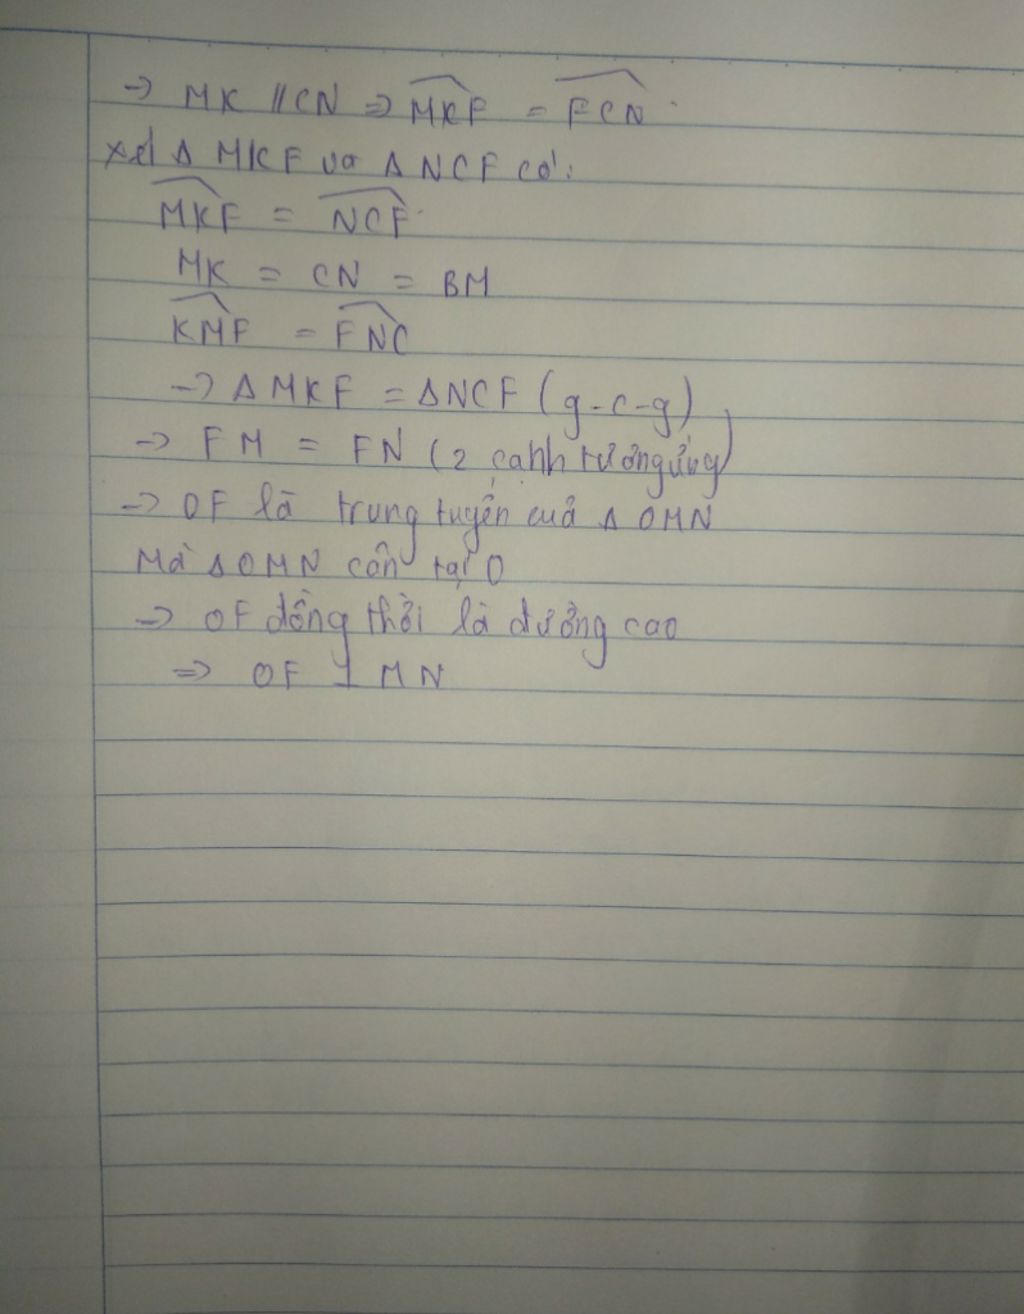 → MK // CN ⇒ \widehat{MKF} = \widehat{FCN}.
xét Δ MKF và Δ NCF có:
\widehat{MKF} = \widehat{NCF}.
MK = CN = BM
\widehat{KMF} = \widehat{FNC}
→ Δ MKF = Δ NCF (g-c-g)
→ FM = FN (2 cạnh tương ứng)
→ OF là trung tuyến của Δ OMN
Mà Δ OMN cân tại O
→ OF đồng thời là đường cao
⇒ OF ⊥ MN